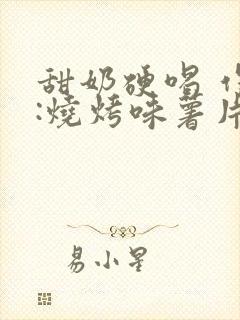 甜奶硬唱
:燒烤味薯片
易小星